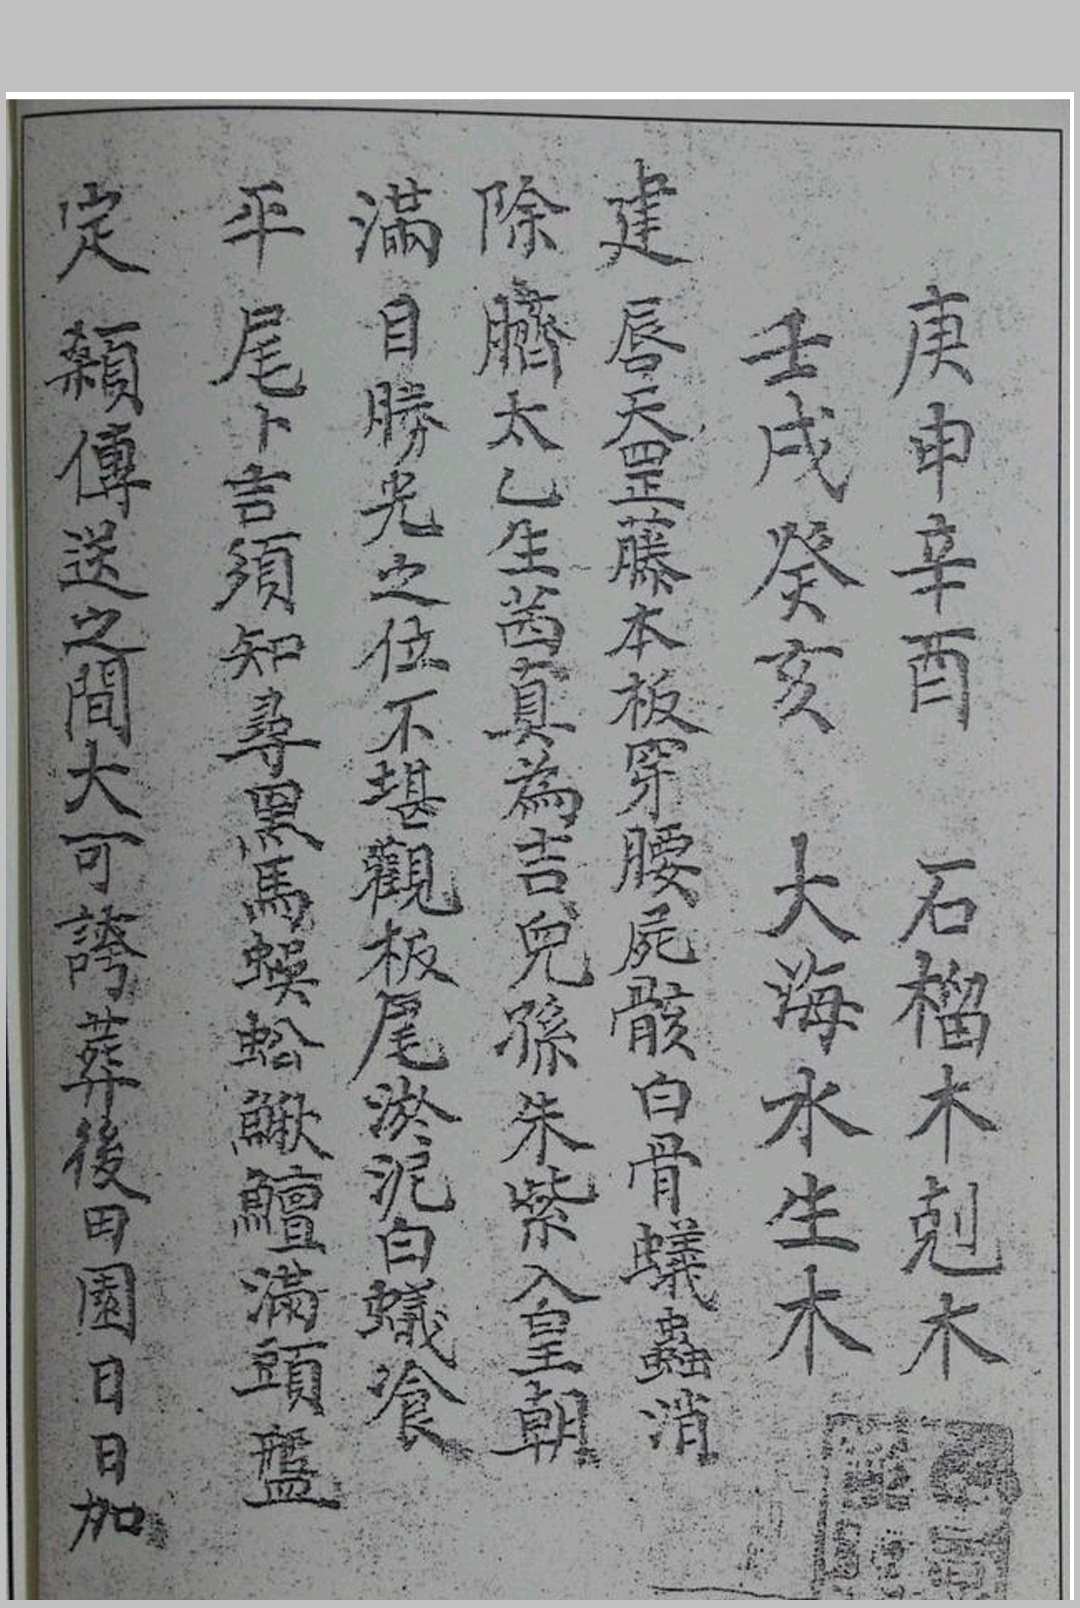 庚申辛酉 石榴木剋木
壬戌癸亥 大海水生木
建 唇天罡藤本板穿腰屍骸白骨蟻蟲消
除 臍太乙生茜真為吉兒孫朱紫入皇朝
滿 目勝光之位不堪觀板尾淤泥白蟻飡
平 尾卜吉須知尋黑馬蜈蚣鰍鱣滿頭盤
定 顙傳送之間大可誇葬後田園日日加